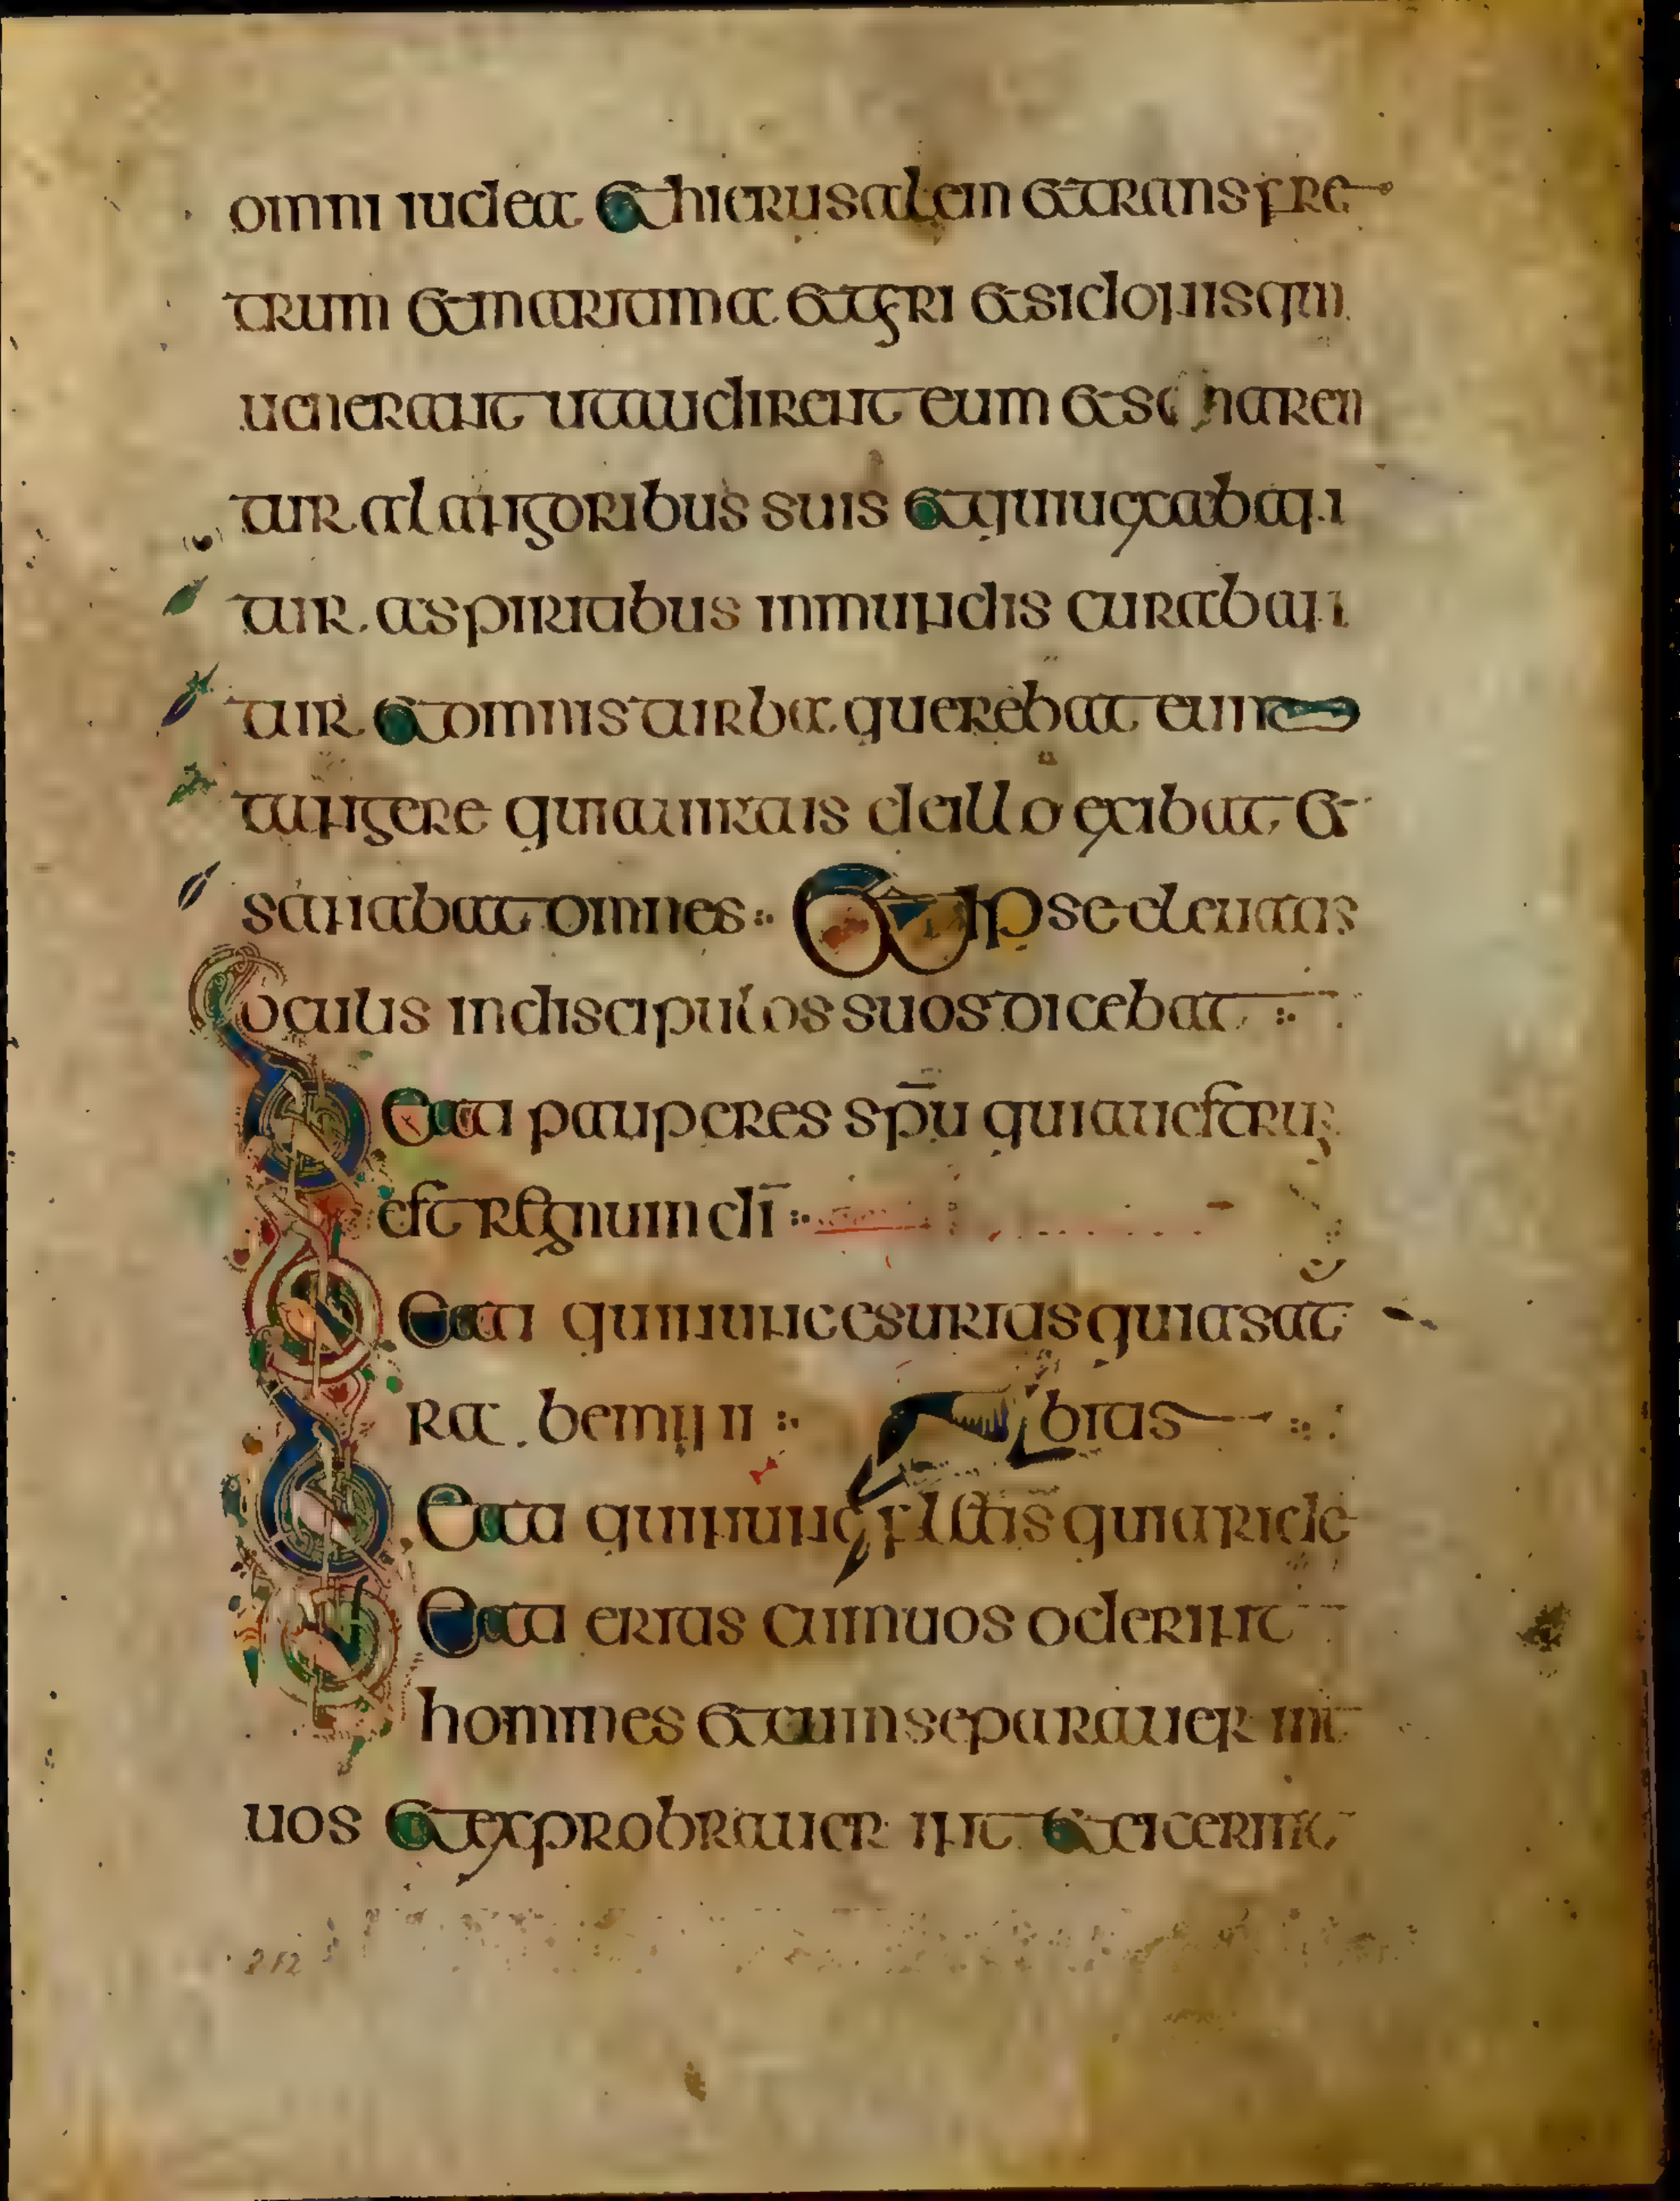 omni iudea et hierusalem et trans fre
trum et maritima et tyri et sidonis qui
uenerant ut audirent eum et sanaren
tur a languoribus suis et qui uexaban
tur a spiritibus inmundis curaban
tur et omnis turba querebat eum
tangere quia uirtus de illo exibat et
sanabat omnes Et ipse eleuatis
oculis in discipulos suos dicebat
Beati pauperes spu quia uestrum
est regnum di
Beati qui nunc esuritis quia sat
ra bemini bitis
Beati qui nunc fletis quia ride
Beati eritis cum uos oderint
homines et cum separauerint
uos et exprobrauerint et eicerint
212